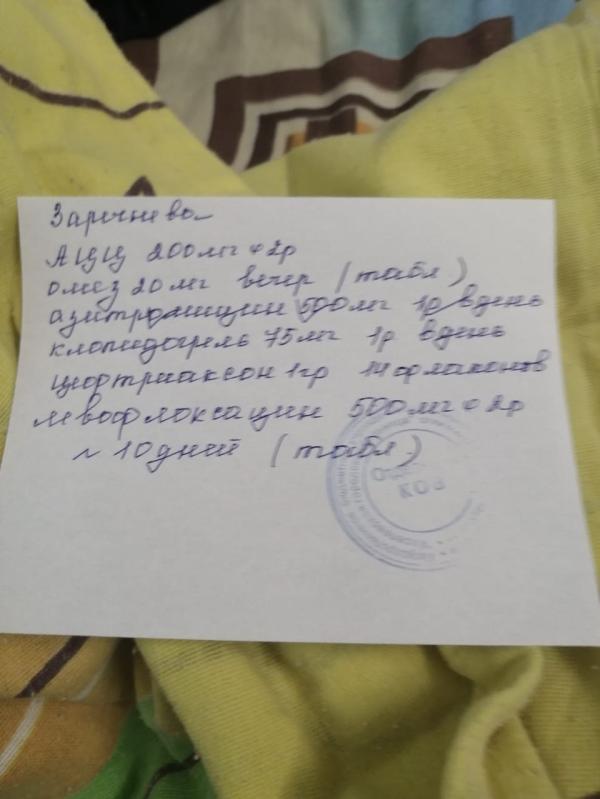 Заречнево
АЦЦ 200мг * 2р
омез 20мг вечер (табл)
азитромицин 500мг 1р в день
клопидогрель 75мг 1р в день
цефтриаксон 1гр 14 флаконов
левофлоксацин 500мг * 2р
~ 10 дней (табл)
КОВ